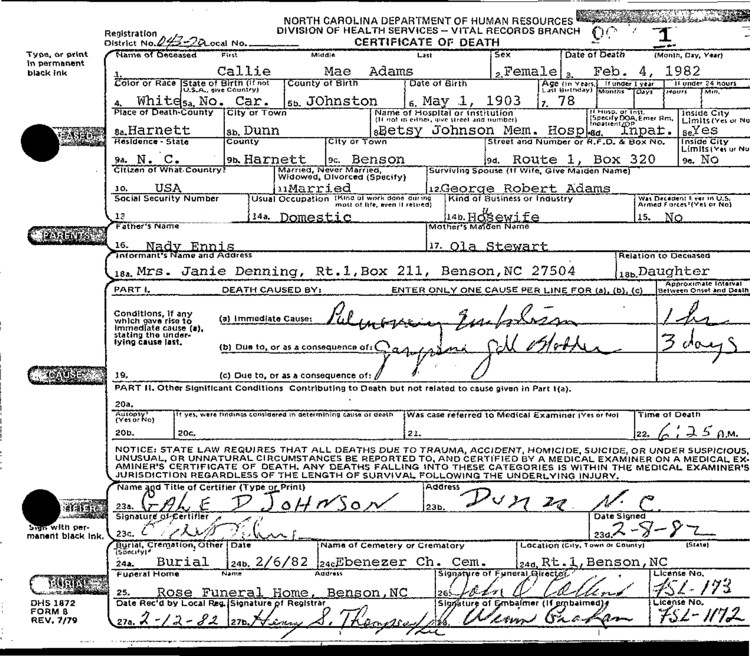 NORTH CAROLINA DEPARTMENT OF HUMAN RESOURCES
DIVISION OF HEALTH SERVICES – VITAL RECORDS BRANCH
CERTIFICATE OF DEATH
1
Registration
District No. 043-70 Local No.
Type, or print
in permanent
black ink
Name of Deceased First Middle Last Sex Date of Death (Month, Day, Year)
1. Callie Mae Adams 2. Female 3. Feb. 4, 1982
Color or Race State of Birth (If not U.S.A., give Country) County of Birth Date of Birth Age (In Years, Last Birthday) If under 1 year Months Days If under 24 hours Hours Min.
4. White 5a. No. Car. 5b. JOhnston 6. May 1, 1903 7. 78
Place of Death-County City or Town Name of Hospital or Institution (If not in either, give street and number) If Hosp. or Inst. (Specify DOA, Emer Rm, Inpatient/OP Inside City Limits (Yes or No
8a. Harnett 8b. Dunn 8 Betsy Johnson Mem. Hosp 8d. Inpat. 8e Yes
Residence-State County City or Town Street and Number or R.F.D. & Box No. Inside City Limits (Yes or No
9a. N. C. 9b. Harnett 9c. Benson 9d. Route 1, Box 320 9e. No
Citizen of What Country? Married, Never Married, Widowed, Divorced (Specify) Surviving Spouse (If Wife, Give Maiden Name)
10. USA 11 Married 12. George Robert Adams
Social Security Number Usual Occupation (Kind of work done during most of life, even if retired) Kind of Business or Industry Was Decedent Ever in U.S. Armed Forces? (Yes or No)
13 14a. Domestic 14b. Housewife 15. No
PARENTS
Father's Name Mother's Maiden Name
16. Nady Ennis 17. Ola Stewart
Informant's Name and Address Relation to Deceased
18a. Mrs. Janie Denning, Rt.1, Box 211, Benson, NC 27504 18b. Daughter
PART I. DEATH CAUSED BY: ENTER ONLY ONE CAUSE PER LINE FOR (a), (b), (c) Approximate Interval Between Onset and Death
Conditions, if any
which gave rise to
immediate cause (a),
stating the under-
lying cause last.
(a) Immediate Cause: Pulmonary Embolism 1 hr
(b) Due to, or as a consequence of: Gangrene Gall Bladder 3 days
CAUSE
19. (c) Due to, or as a consequence of:
PART II. Other Significant Conditions Contributing to Death but not related to cause given in Part I(a).
20a.
Autopsy? (Yes or No) If yes, were findings considered in determining cause of death Was case referred to Medical Examiner (Yes or No) Time of Death
20b. 20c. 21. 22. 6:25 A.M.
NOTICE: STATE LAW REQUIRES THAT ALL DEATHS DUE TO TRAUMA, ACCIDENT, HOMICIDE, SUICIDE, OR UNDER SUSPICIOUS,
UNUSUAL, OR UNNATURAL CIRCUMSTANCES BE REPORTED TO, AND CERTIFIED BY A MEDICAL EXAMINER ON A MEDICAL EX-
AMINER'S CERTIFICATE OF DEATH. ANY DEATHS FALLING INTO THESE CATEGORIES IS WITHIN THE MEDICAL EXAMINER'S
JURISDICTION REGARDLESS OF THE LENGTH OF SURVIVAL FOLLOWING THE UNDERLYING INJURY.
Name and Title of Certifier (Type or Print) Address
23a. GALE D JOHNSON 23b. DUNN N.C.
Signature of Certifier Date Signed
23c. 23d. 2-8-82
Sign with per-
manent black ink.
Burial, Cremation, Other (Specify) Date Name of Cemetery or Crematory Location (City, Town or County) (State)
24a. Burial 24b. 2/6/82 24c Ebenezer Ch. Cem. 24d. Rt.1, Benson, NC
BURIAL
Funeral Home Name Address Signature of Funeral Director License No.
25. Rose Funeral Home, Benson, NC 26. John Q Collins FSL-173
DHS 1872
FORM 8
REV. 7/79
Date Rec'd by Local Reg. Signature of Registrar Signature of Embalmer (If embalmed) License No.
27a. 2-12-82 27b. Henry S. Thompson 28. Graham FSL-1172